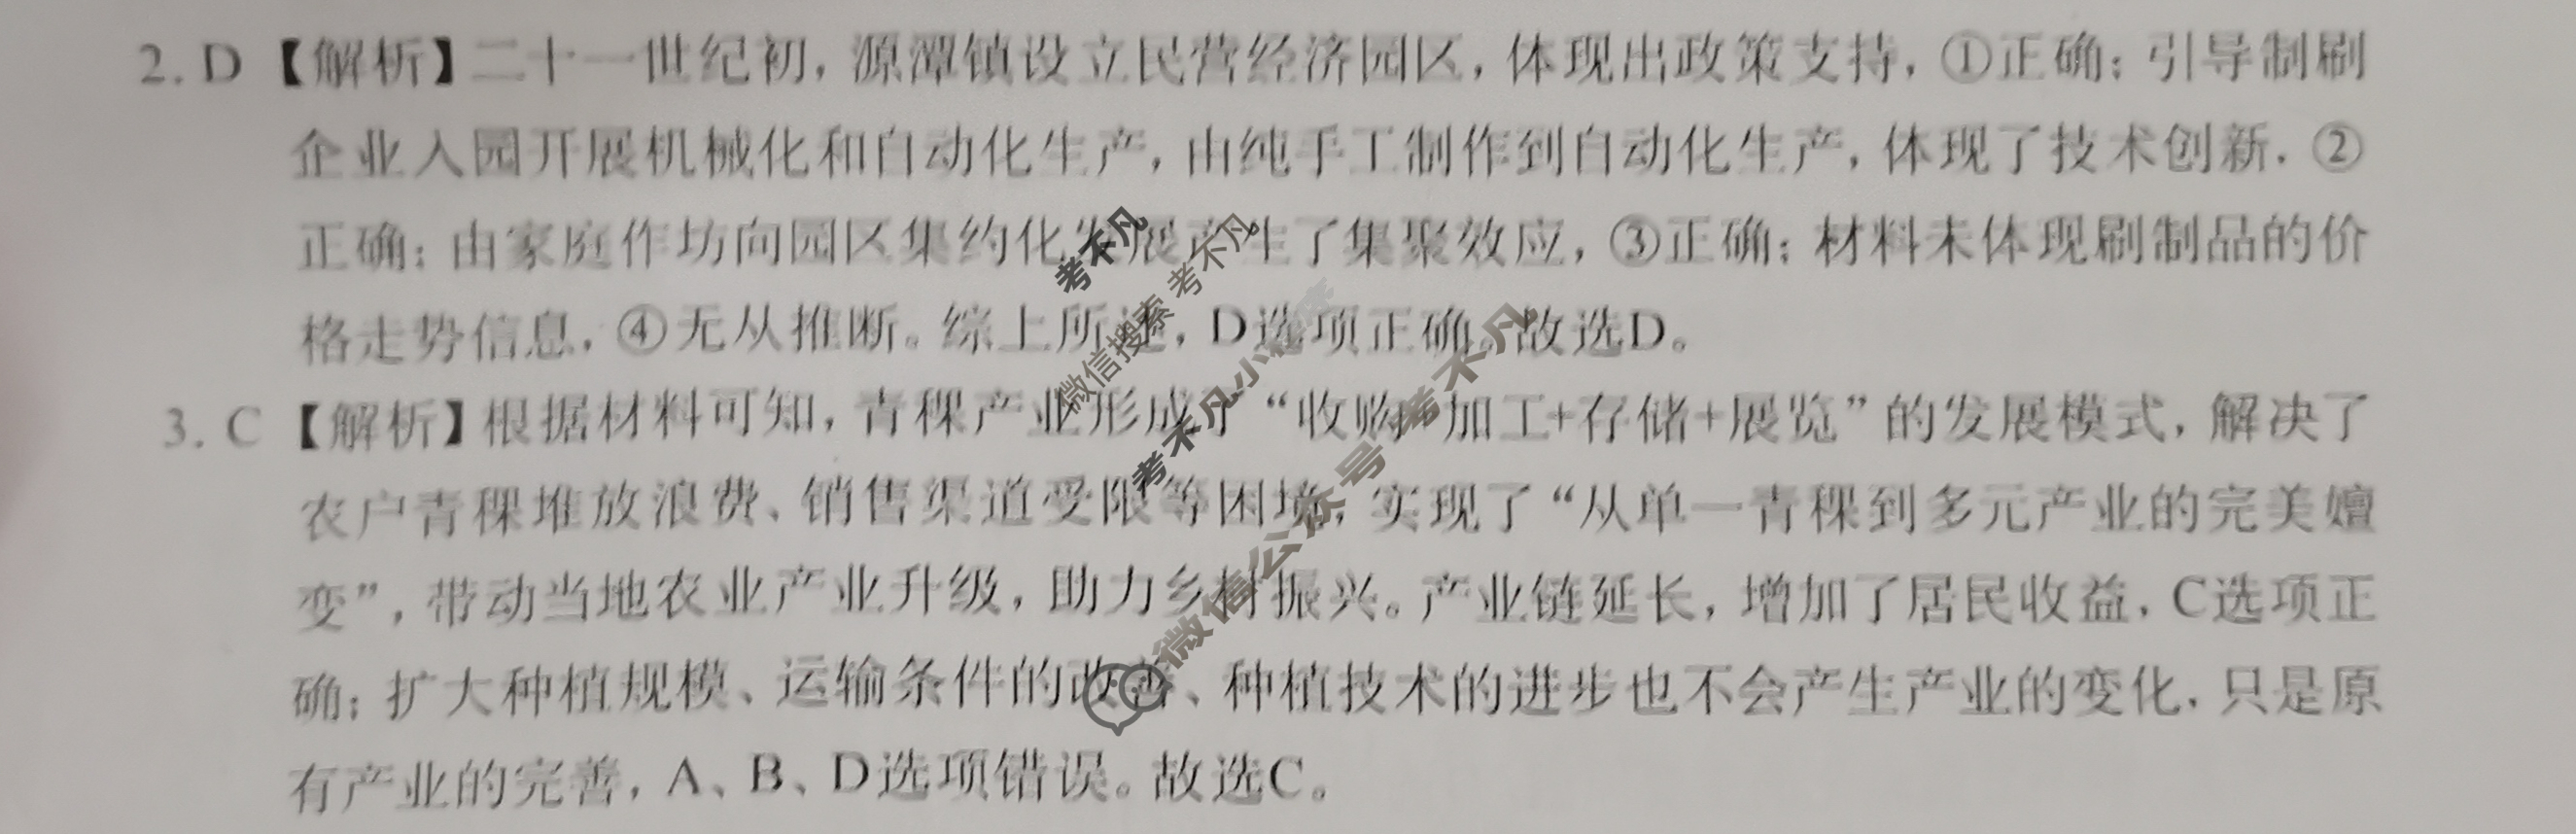 2. D【解析】二十一世纪初，源潭镇设立民营经济园区，体现出政策支持，①正确；引导制刷
企业入园开展机械化和自动化生产，由纯手工制作到自动化生产，体现了技术创新，②
正确；由家庭作坊向园区集约化发展产生了集聚效应，③正确；材料未体现刷制品的价
格走势信息，④无从推断。综上所述，D选项正确。故选D。
3. C【解析】根据材料可知，青稞产业形成了“收购+加工+存储+展览”的发展模式，解决了
农户青稞堆放浪费、销售渠道受限等困境，实现了“从单一青稞到多元产业的完美嬗
变”，带动当地农业产业升级，助力乡村振兴。产业链延长，增加了居民收益，C选项正
确；扩大种植规模、运输条件的改善、种植技术的进步也不会产生产业的变化，只是原
有产业的完善，A、B、D选项错误。故选C。
考不凡
微信搜索 考不凡
考不凡小程序
微信公众号 考不凡